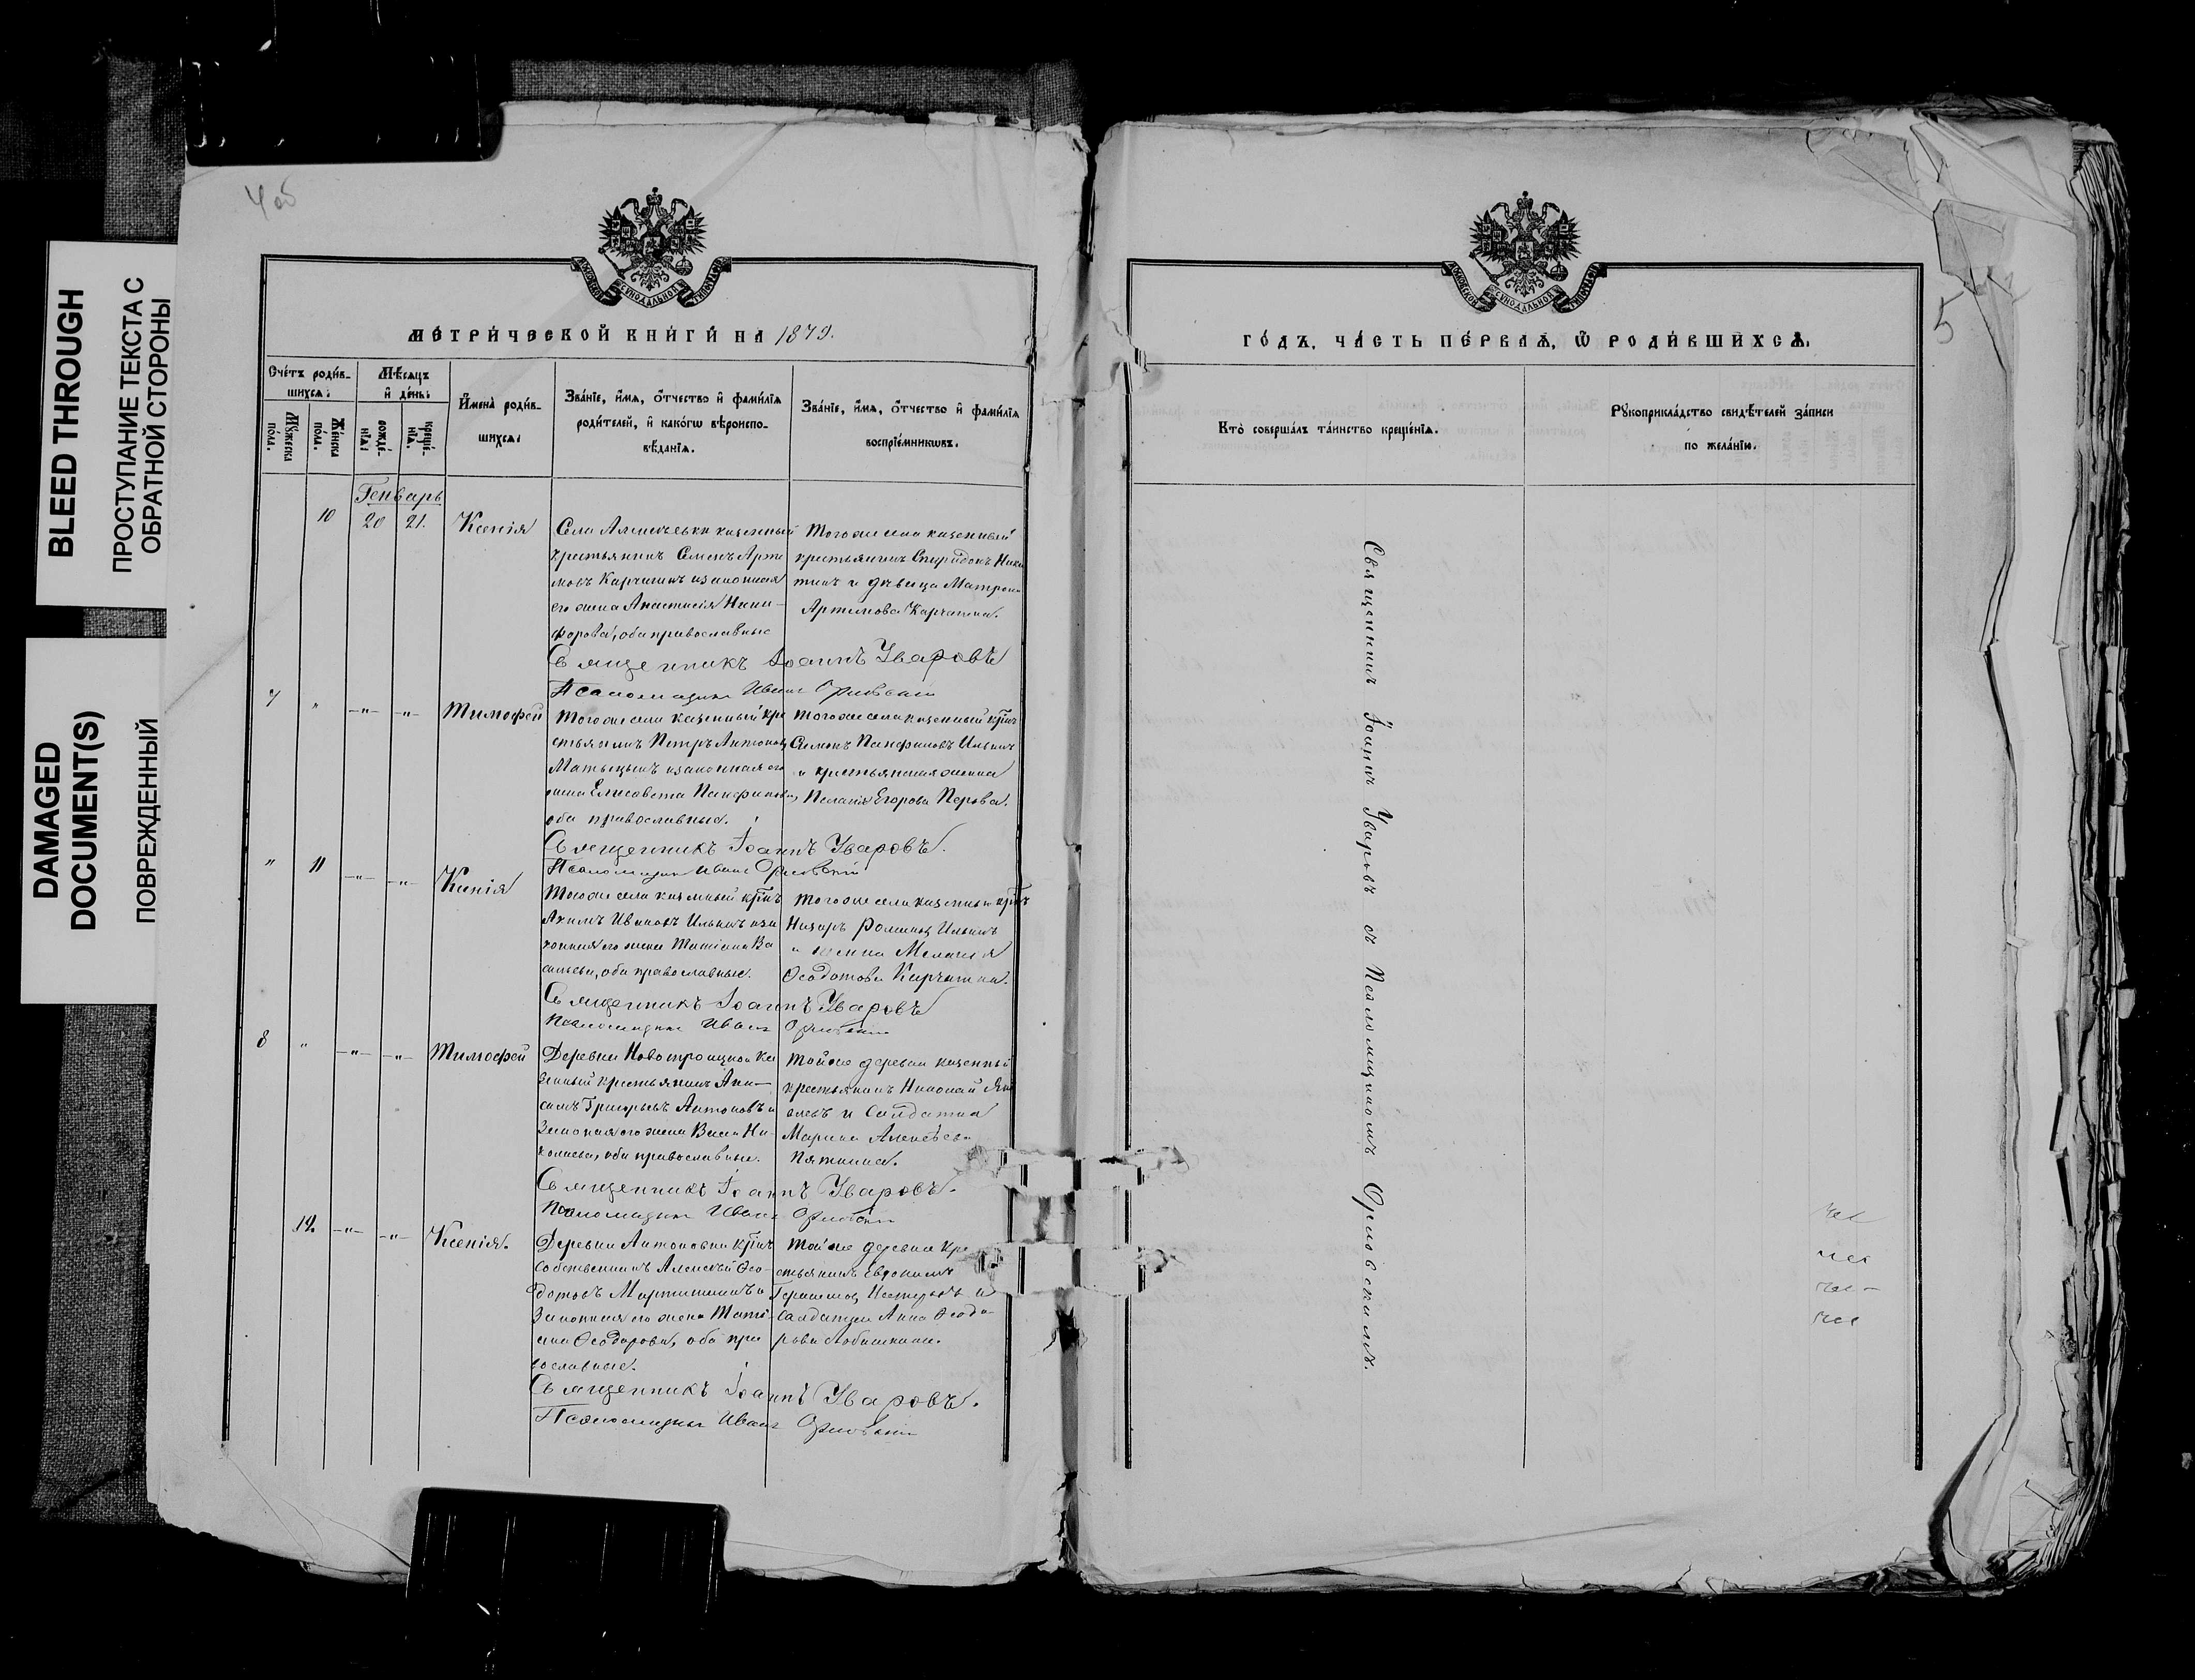 BLEED THROUGH
ПРОСТУПАНИЕ ТЕКСТА С
ОБРАТНОЙ СТОРОНЫ
DAMAGED
DOCUMENT(S)
ПОВРЕЖДЕННЫЙ
4об
МОСКОВСКОЙ СѴНОДАЛЬНОЙ ТИПОГРАФІИ
МЕТРИ́ЧЕСКОЙ КНИ́ГИ НА 1879.
Сче́тъ роди́в-
шихсѧ:
Мꙋ́жеска
по́ла.
Же́нска
по́ла.
Мѣ́сѧцъ
и҆ де́нь:
рожде́-
нїѧ:
креще́-
нїѧ.
И҆мена̀ роди́в-
шихсѧ:
Зва́нїе, и҆́мѧ, ѻ҆́тчество и҆ фами́лїѧ
роди́телей, и҆ како́гѡ вѣроиспо-
вѣ́данїѧ.
Зва́нїе, и҆́мѧ, ѻ҆́тчество и҆ фами́лїѧ
воспрїе́мникѡвъ.
Генварь
10 20 21. Ксенія
Села Алексѣевки казенный
крестьянинъ Семенъ Арте
мовъ Карчагинъ изаконная
его жена Анастасія Ники-
форова, оба православные
Тогоже села казенный
крестьянинъ Спиридонъ Ники
тинъ и дѣвица Матрона
Артемова Карчагина.
Священникъ Іоаннъ Уваровъ
Псаломщикъ Иванъ Орловскій
7 " —"— —"— Тимофей
Тогоже села казенный кре
стьянинъ Петръ Антоновъ
изаконная его
жена Елисавета Панфилова,
оба православные.
Тогоже села казенный кр̃нъ
Симонъ Панфиловъ Ильинъ
и крестьянская жена
Пелагія Егорова Перова.
Священникъ Іоаннъ Уваровъ.
Псаломщикъ Иванъ Орловскій
" 11 —"— —"— Ксенія
Тогоже села казенный кр̃нъ
Акимъ Ивановъ Ильинъ иза
конная его жена Татіана Ва
сильева, оба православные.
Тогоже села казенный кр̃нъ
Назаръ Романовъ Ильинъ
и жена Меланія
Ѳеодотова Карчагина.
Священникъ Іоаннъ Уваровъ
Псаломщикъ Иванъ Орловскій
8 " —"— —"— Тимофей
Деревни Новотроицкой ка
зенный крестьянинъ Ани-
симъ Григорьевъ Антоновъ и
Законная его жена Васса Ни-
колаева, оба православные.
Тойже деревни казенный
крестьянинъ Николай Яко
влевъ и Солдатка
Марина Алексѣева
Пяткина.
Священникъ Іоаннъ Уваровъ.
Псаломщикъ Иванъ Орловскій
12. —"— —"— Ксенія.
Деревни Антоновки кр̃нъ
Собственникъ Алексѣй Ѳео-
дотовъ Мартишинъ и
Законная его жена Таті-
ана Ѳеодорова, оба пра
вославные.
Тойже деревни Кре
стьянинъ Евдокимъ
и
Солдатка Анна Ѳеодо-
рова
Священникъ Іоаннъ Уваровъ.
Псаломщикъ Иванъ Орловскій
5
МОСКОВСКОЙ СѴНОДАЛЬНОЙ ТИПОГРАФІИ
ГО́ДЪ, ЧА́СТЬ ПЕ́РВАѦ, Ѽ РОДИ́ВШИХСѦ.
Кто̀ соверша́лъ та́инство креще́нїѧ.
Рꙋкоприкла́дство свидѣ́телей за́писи
по жела́нїю.
Священникъ Іоаннъ Уваровъ съ Псаломщикомъ Орловскимъ.